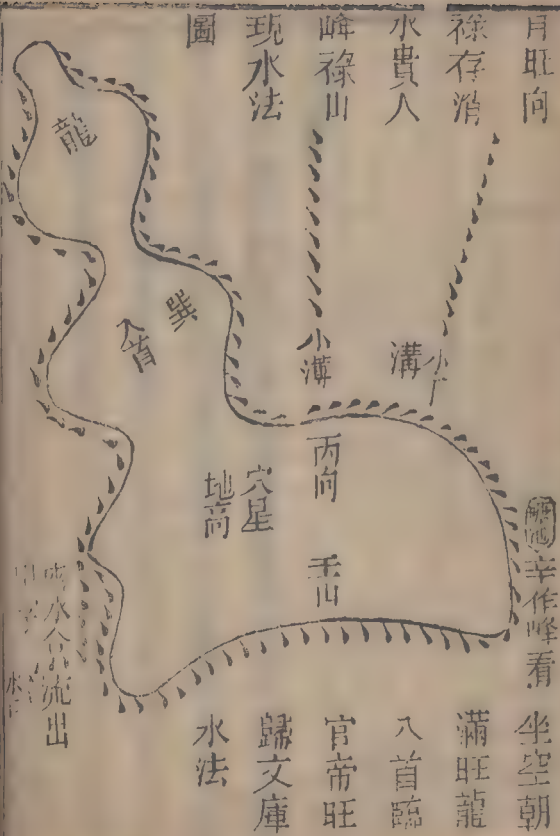 肖旺向
祿存消
水貴人
峰祿山
現水法
圖
龍
巽
入首
小溝
溝
丙向
壬山
穴星
地高
辛作峰看
水合流出
坐空朝
滿旺龍
入首臨
官帝旺
歸文庫
水法